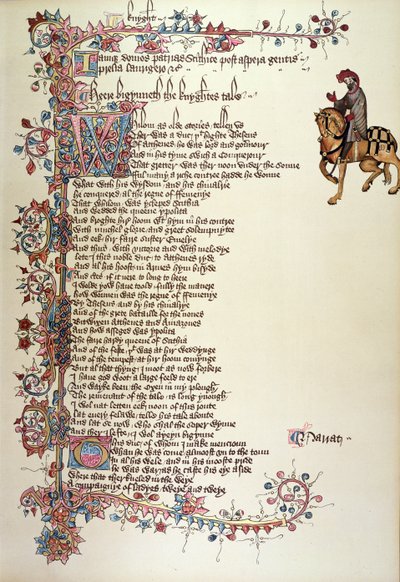 Knyght
Iamqz domos patrias Sithice post aspera gentis
prelia laurigero &c
Heere bigynneth the knyghtes tale
Whilom as olde stories tellen us
Ther was a duc þt highte Theseus
Of Atthenes he was lord and gouernour
And in his tyme swich a Conquerour
That gretter was ther noon vnder the sonne
fful many a riche contree hadde he wonne
What with his wysdom and his chiualrie
He conquered al the regne of ffemenye
That whilom was ycleped Scithia
And wedded the queene ypolita
And broghte hir hoom wt hym in his contree
With muchel glorie and greet solempnytee
And eek hir faire suster Emelye
And thus with victorie and with melodye
Lete I this noble duc to Atthenes ryde
And al his hoost in Armes hym bisyde
And certes if it nere to long to heere
I wolde yow haue toold fully the manere
How wonnen was the regne of ffemenye
By Theseus and by his chiualrye
And of the grete bataille for the nones
Bitwixen Atthenes and Amazones
And how asseged was ypolita
The faire hardy queene of Scithia
And of the feste þt was at hir weddynge
And of the tempest at hir hoom comynge
But al that thyng I moot as now forbere
I haue god woot a large feeld to ere
And wayke been the oxen in my plough
The remenant of the tale is long ynough
I wol nat letten eek noon of this route
Lat euery felawe telle his tale aboute
And lat se now who shal the soper wynne
And ther I lefte I wol ayeyn bigynne
This duc of whom I make mencioun
Whan he was come almoost vn to the toun
In al his wele and in his mooste pride
He was war as he caste his eye aside
Where that ther kneled in the weye
A compaignye of ladyes tweye and tweye
Narrat